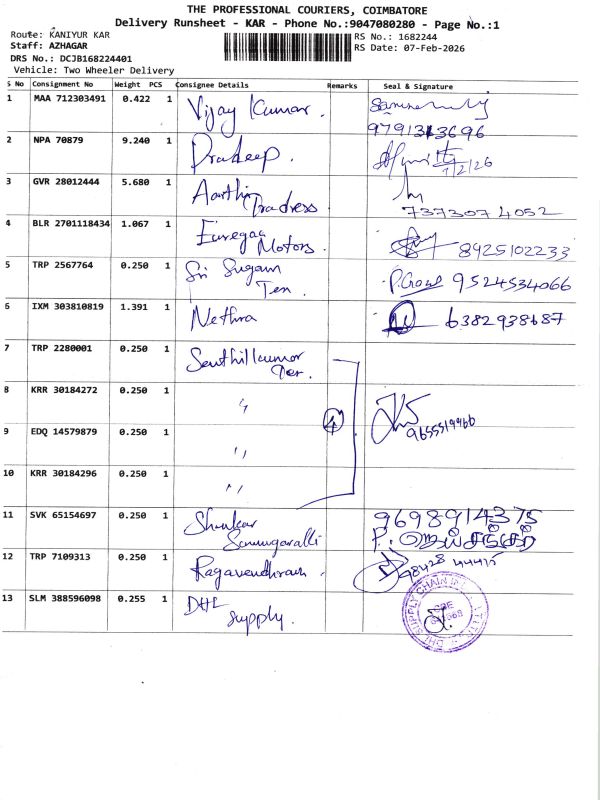 THE PROFESSIONAL COURIERS, COIMBATORE
Delivery Runsheet - KAR - Phone No.:9047080280 - Page No.:1
Route: KANIYUR KAR
RS No.: 1682244
Staff: AZHAGAR
RS Date: 07-Feb-2026
DRS No.: DCJB168224401
Vehicle: Two Wheeler Delivery
S No Consignment No Weight PCS Consignee Details Remarks Seal & Signature
1 MAA 712303491 0.422 1 Vijay Kumar.
9791313696
2 NPA 70879 9.240 1 Pradeep.
7/2/26
3 GVR 28012444 5.680 1 Aarthi
Tradress
7373074052
4 BLR 2701118434 1.067 1 Euregaa
Motors. 8925102233
5 TRP 2567764 0.250 1 Sri Sugam
Tex. 9524534066
6 IXM 303810819 1.391 1 Nethra 6382938687
7 TRP 2280001 0.250 1 Senthilkumar
Tex.
8 KRR 30184272 0.250 1 〃
4
9655519466
9 EDQ 14579879 0.250 1 〃
10 KRR 30184296 0.250 1 〃
11 SVK 65154697 0.250 1 Shankar 9698914375
P. ஜெய்சங்கர்
12 TRP 7109313 0.250 1 Ragavendhram. 98428 44415
13 SLM 388596098 0.255 1 DHL
supply.
SUPPLY CHAIN